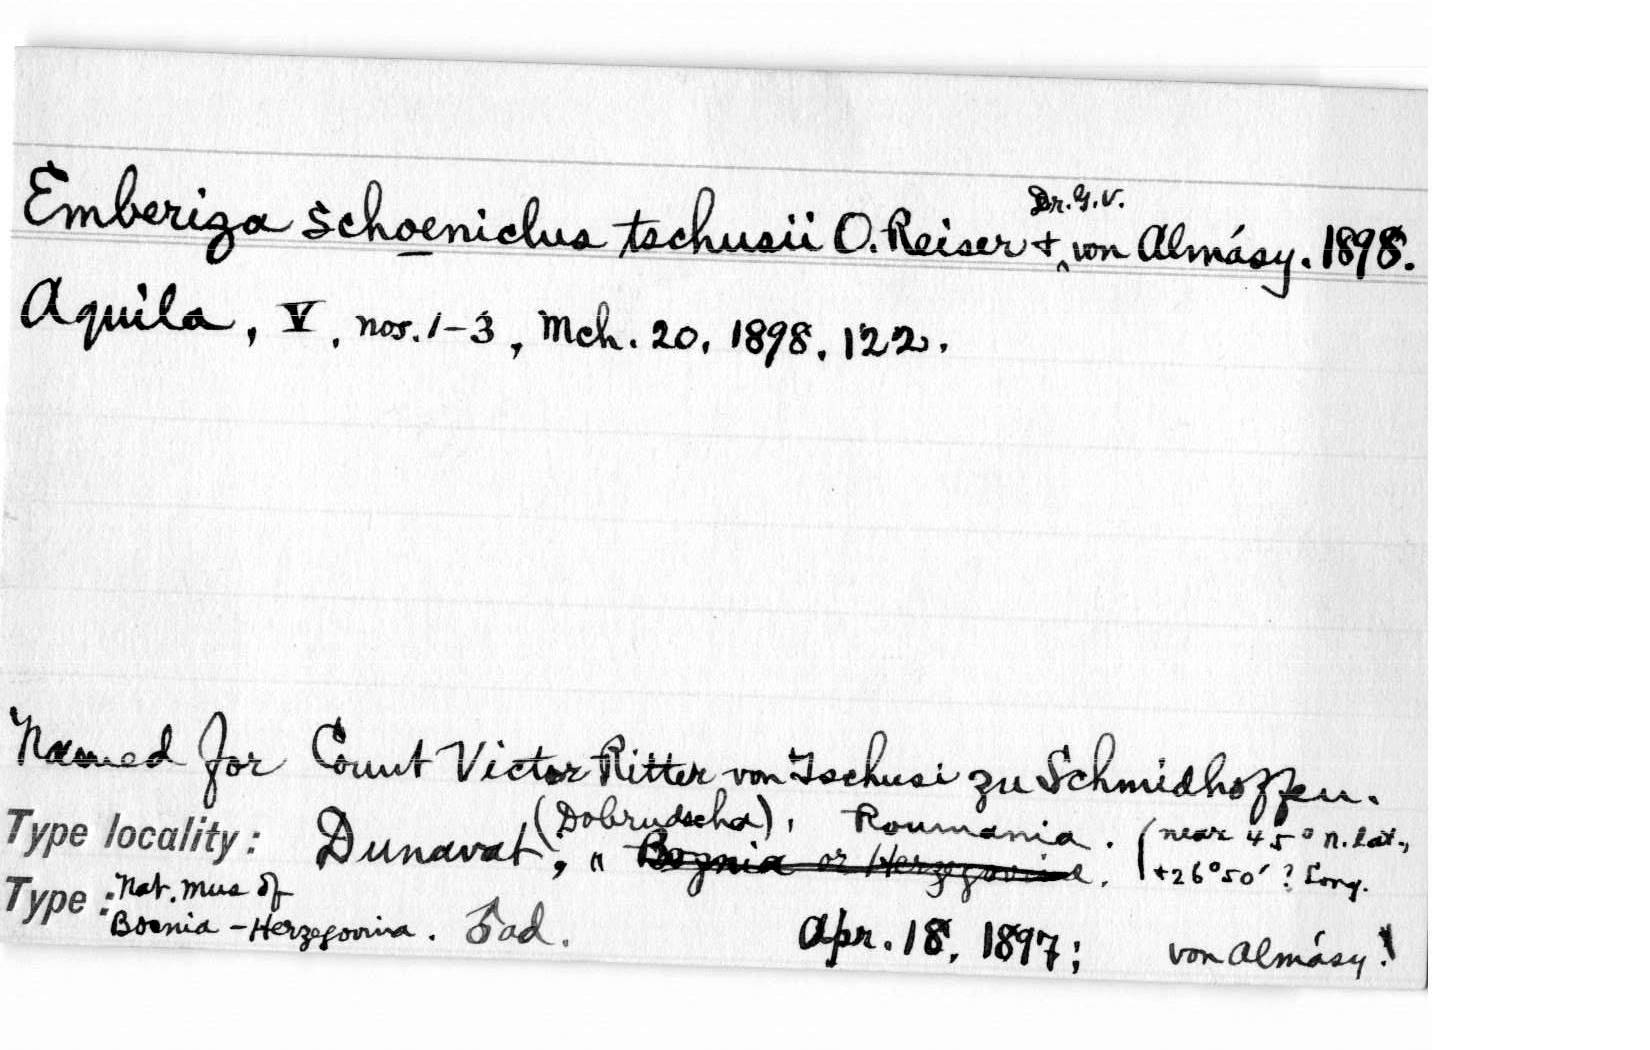 Emberiza schoeniclus tschusii O. Reiser + Dr. G. v. von Almásy. 1898.
Aquila, V, nos. 1-3, Mch. 20, 1898, 122.
Named for Count Victor Ritter von Tschusi zu Schmidhoffen.
Type locality: Dunavat, (Dobrudscha), Roumania. (near 45° N. Lat.,
" Boznia or Herzegovine. +26°50' ? Long.
Type: Nat. Mus of
Bosnia-Herzegovina. ad. Apr. 18, 1897; von Almásy!